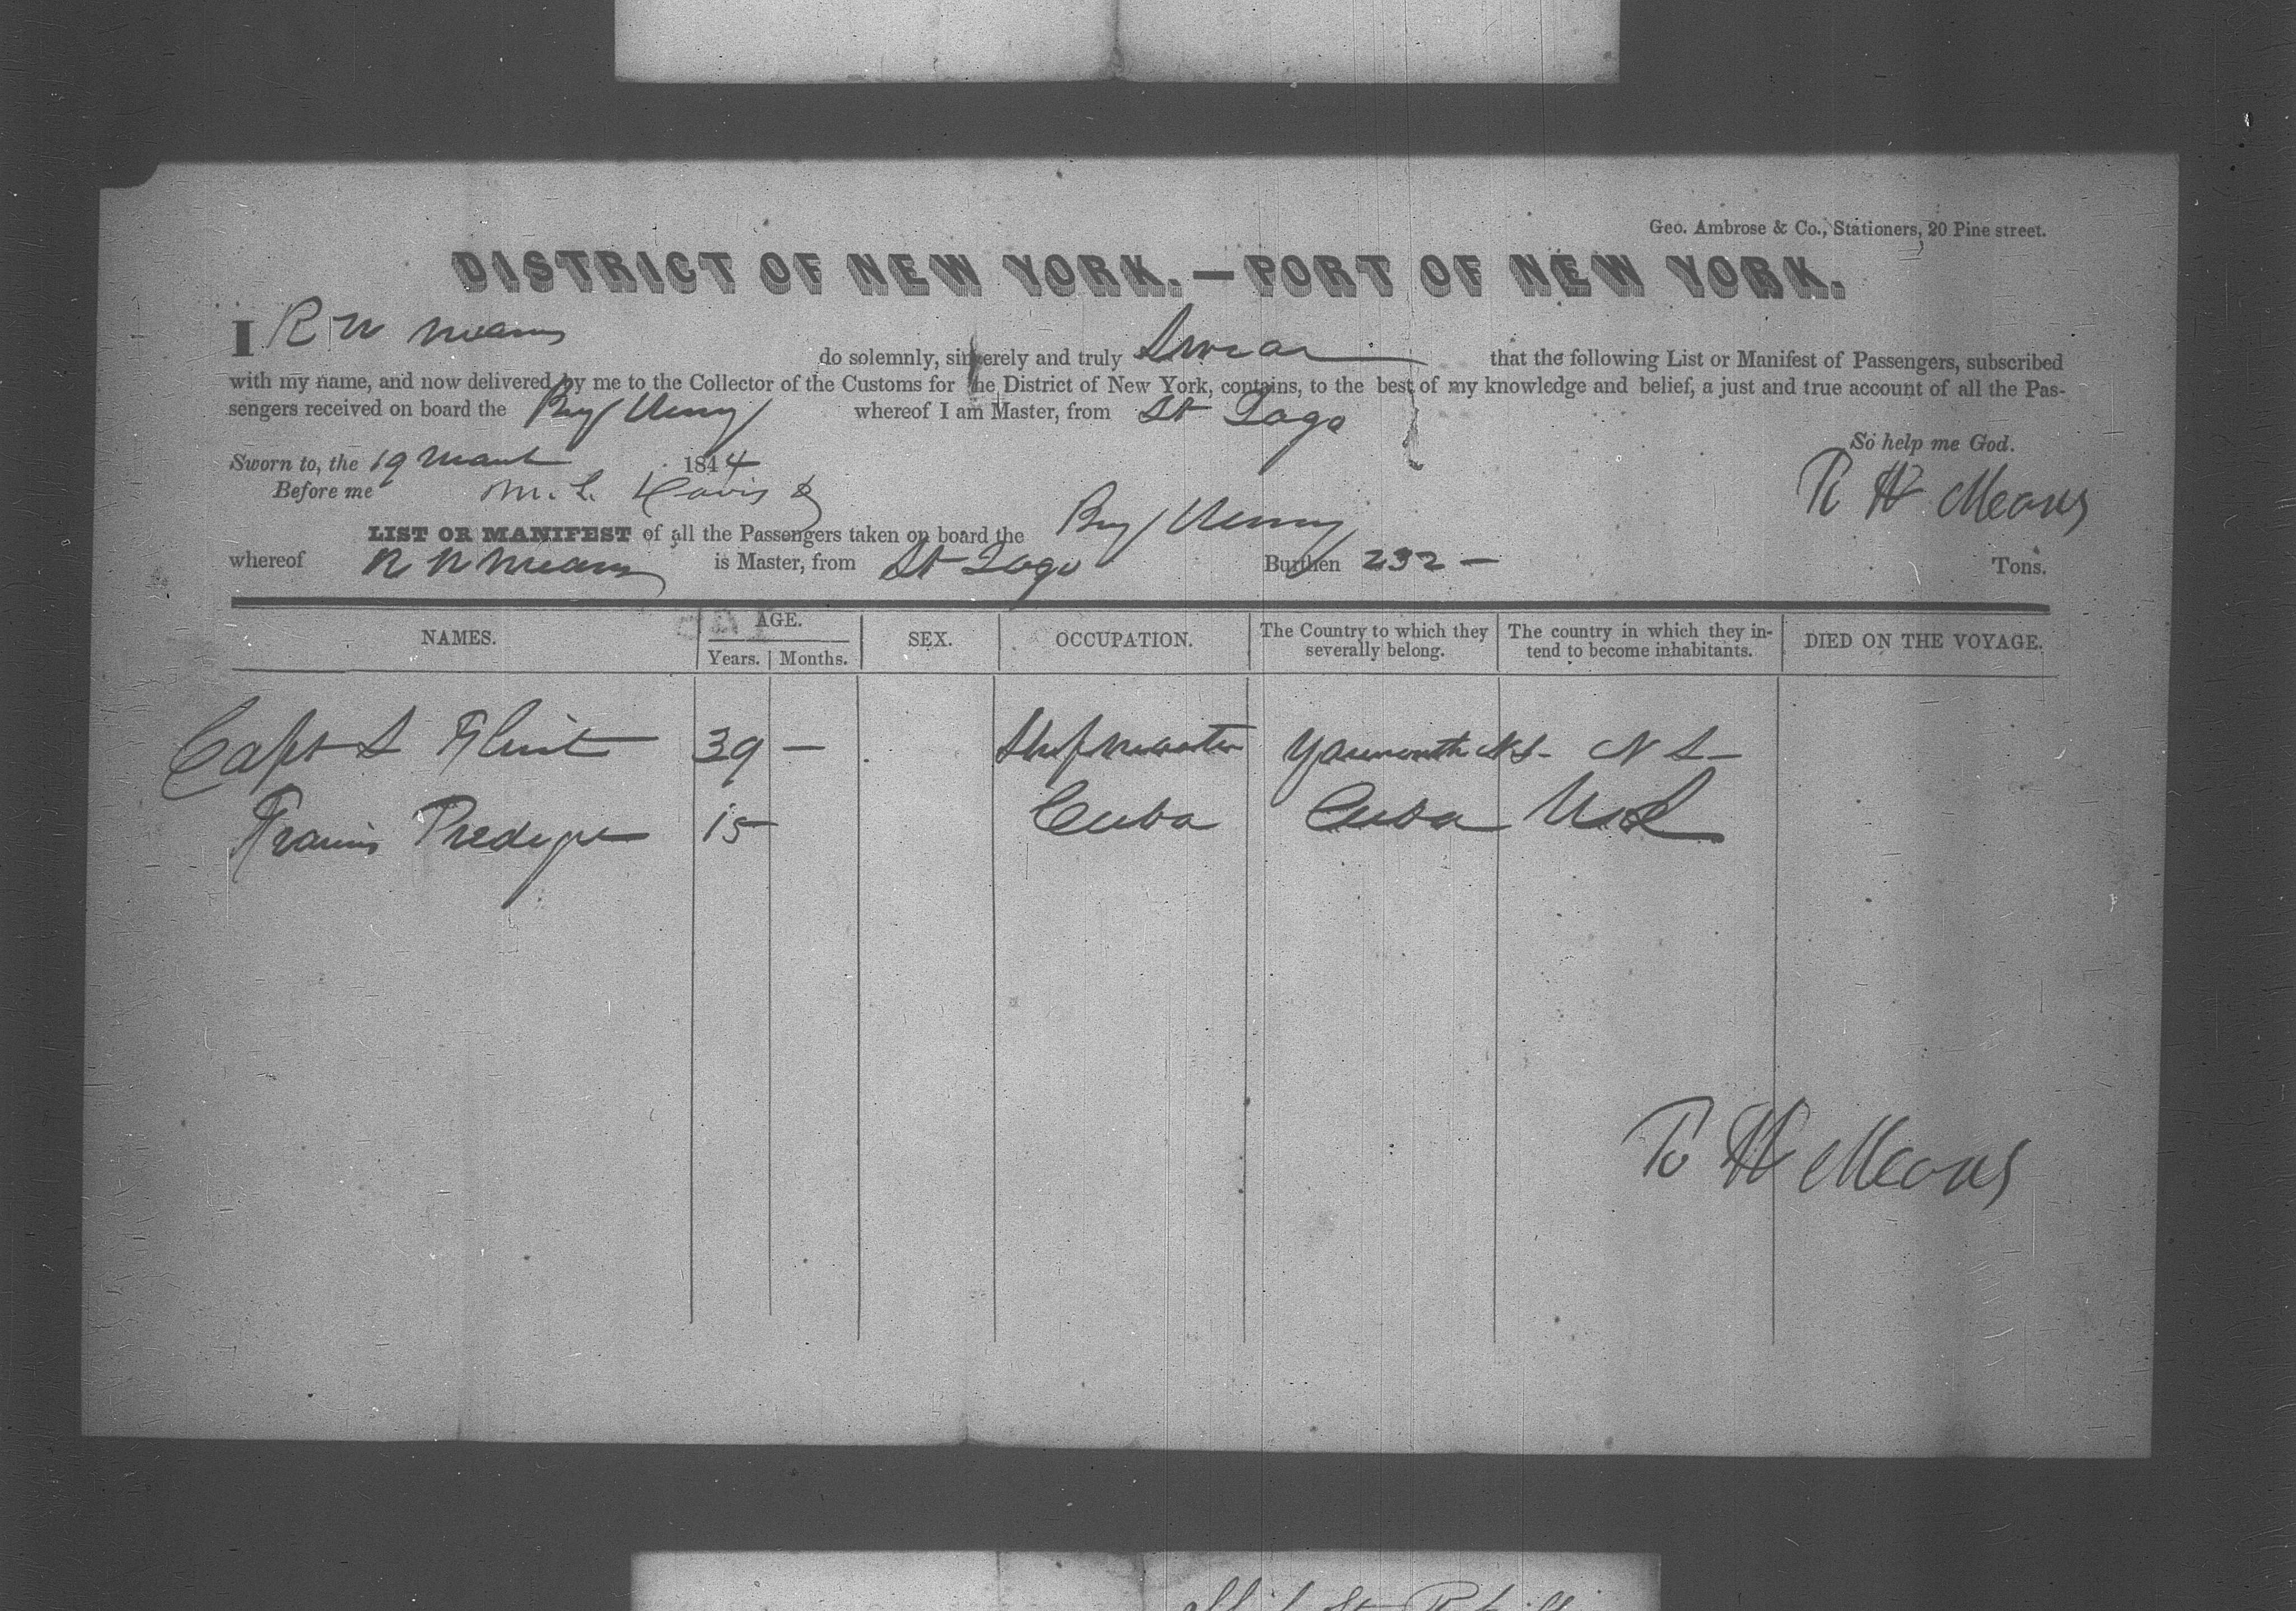 Geo. Ambrose & Co., Stationers, 20 Pine street.
DISTRICT OF NEW YORK.—PORT OF NEW YORK.
I R W Means do solemnly, sincerely and truly Swear that the following List or Manifest of Passengers, subscribed
with my name, and now delivered by me to the Collector of the Customs for the District of New York, contains, to the best of my knowledge and belief, a just and true account of all the Pas-
sengers received on board the Brig Henry whereof I am Master, from St Iago
So help me God.
Sworn to, the 19 March 1844
R W Means
Before me M. L. Davis
LIST OR MANIFEST of all the Passengers taken on board the Brig Henry
whereof R W Means is Master, from St Iago Burthen 232 — Tons.
NAMES. AGE. SEX. OCCUPATION. The Country to which they severally belong. The country in which they in-tend to become inhabitants. DIED ON THE VOYAGE.
Years. Months.
Capt S Flint 39 — Shipmaster Yarmouth N S — N S —
Francis 15 Cuba Cuba U S
R W Means